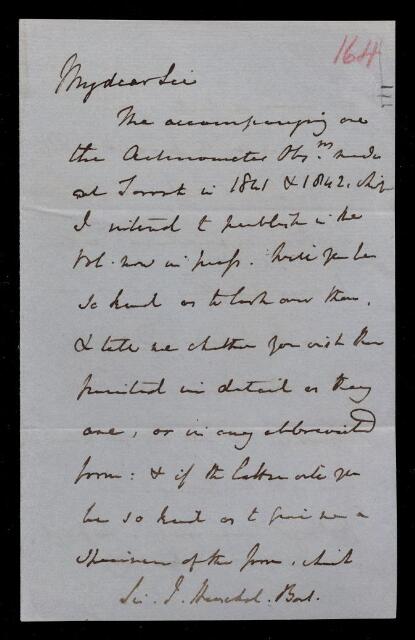 164
My dear Sir
The accompanying are
the Actinometer Obsns. made
at Toronto in 1841 & 1842, which
I intend to publish in the
Vol. now in press. Will you be
so kind as to look over them,
& tell me whether you wish them
printed in detail as they
are, or in any abbreviated
form: & if the latter will you
be so kind as to give me a
specimen of the form, which
Sir J. Herschel. Bart.